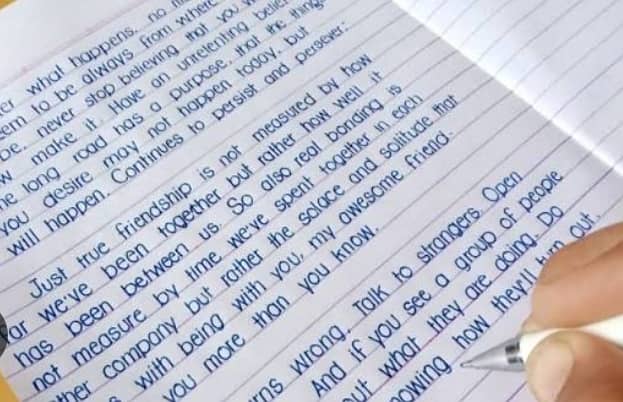 what happens, no
to be always from where
be, never stop believing that you
make it. Have an unrelenting belief
long road has a purpose, that the things
you desire may not happen today, but
will happen. Continues to persist and persever.
Just true friendship is not measured by how
we've been together but rather how well it
has been between us. So also real bonding is
not measure by time we've spent together in each
company but rather the solace and solitude that
with being with you, my awesome friend.
you more than you know.
wrong. Talk to strangers. Open
And if you see a group of people
what they are doing. Do
how they'll turn out.